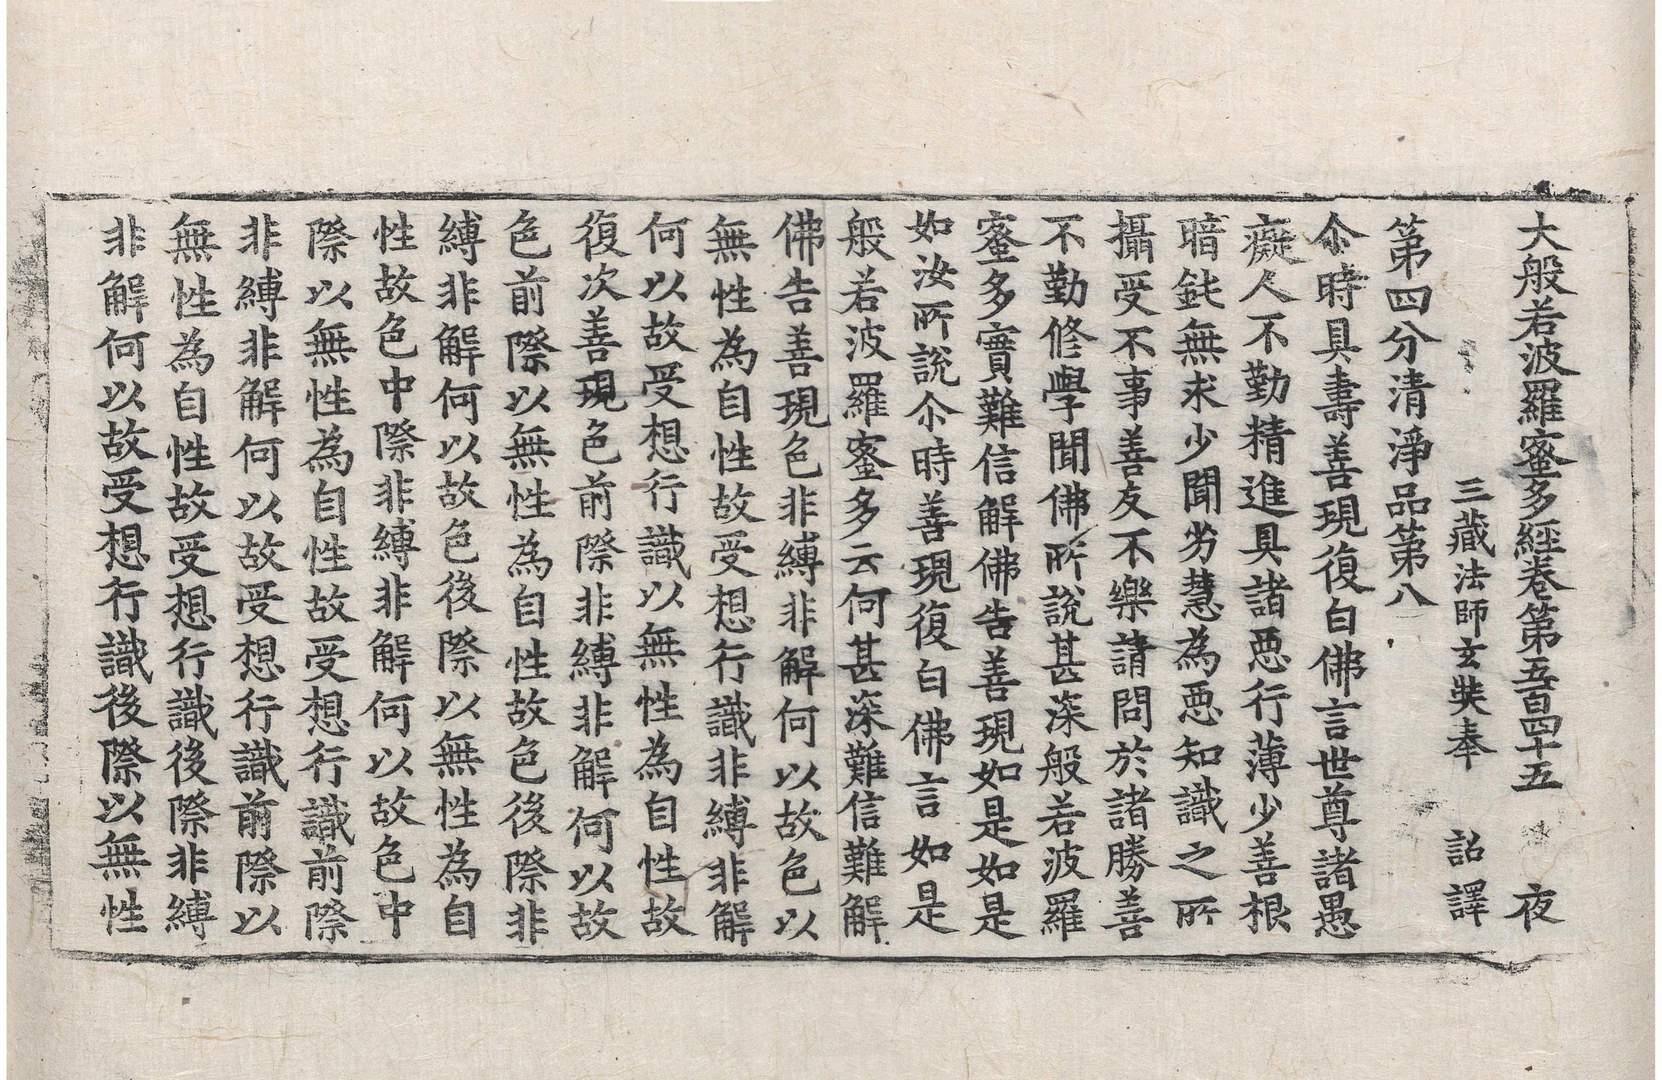 大般若波羅蜜多經卷第五百四十五　夜
三藏法師玄奘奉　詔譯
第四分清淨品第八
尒時具壽善現復白佛言世尊諸愚
癡人不勤精進具諸惡行薄少善根
暗鈍無求少聞劣慧為惡知識之所
攝受不事善友不樂請問於諸勝善
不勤修學聞佛所說甚深般若波羅
蜜多實難信解佛告善現如是如是
如汝所說尒時善現復白佛言如是
般若波羅蜜多云何甚深難信難解
佛告善現色非縛非解何以故色以
無性為自性故受想行識非縛非解
何以故受想行識以無性為自性故
復次善現色前際非縛非解何以故
色前際以無性為自性故色後際非
縛非解何以故色後際以無性為自
性故色中際非縛非解何以故色中
際以無性為自性故受想行識前際
非縛非解何以故受想行識前際以
無性為自性故受想行識後際非縛
非解何以故受想行識後際以無性